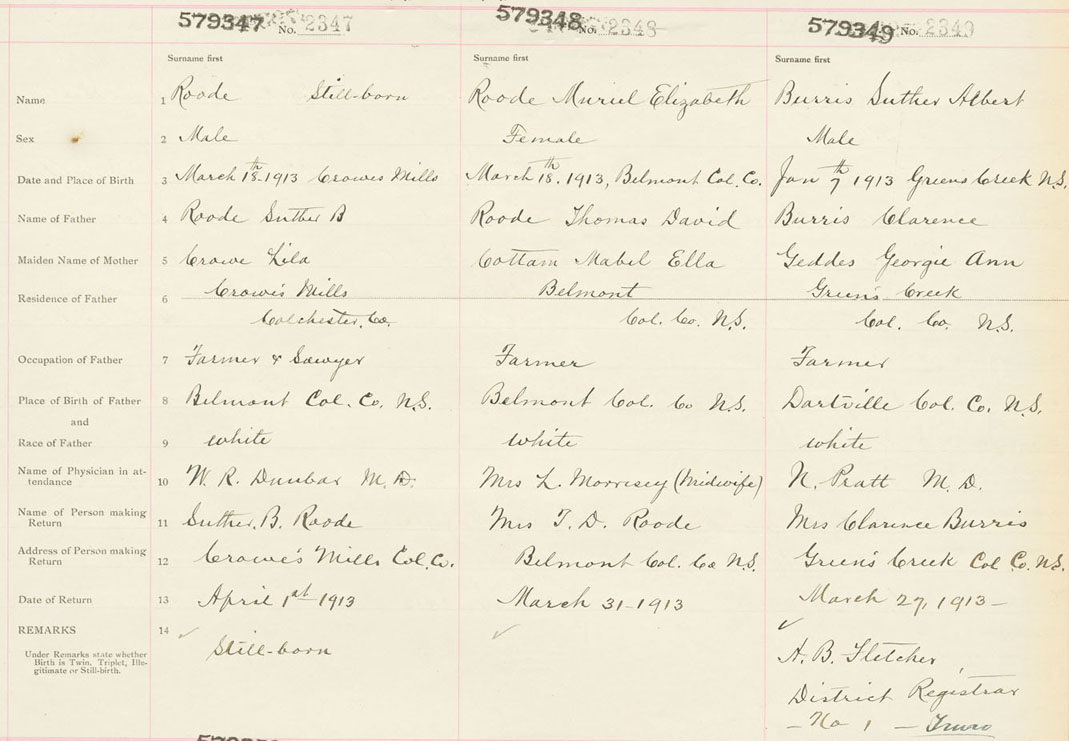 579347 No. 2347
579348 No. 2348
579349 No. 2349
Surname first Surname first Surname first
Name 1 Roode Still-born Roode Muriel Elizabeth Burris Suther Albert
Sex 2 Male Female Male
Date and Place of Birth 3 March 18th 1913 Crowes Mills March 18th. 1913, Belmont Col. Co. Jan 7th 1913 Greens Creek N.S.
Name of Father 4 Roode Suther B Roode Thomas David Burris Clarence
Maiden Name of Mother 5 Crowe Lila Cottam Mabel Ella Geddes Georgie Ann
Residence of Father 6 Crowe's Mills Belmont Green's Creek
Colchester, Co. Col. Co. N.S. Col. Co. N.S.
Occupation of Father 7 Farmer & Sawyer Farmer Farmer
Place of Birth of Father 8 Belmont Col. Co. N.S. Belmont Col. Co N.S. Dartville Col. Co. N.S.
and
Race of Father 9 white white white
Name of Physician in at-
tendance 10 W. R. Dunbar M.D. Mrs L. Morrisey (Midwife) N. Pratt M.D.
Name of Person making
Return 11 Suther. B. Roode Mrs T. D. Roode Mrs Clarence Burris
Address of Person making
Return 12 Crowe's Mills Col. Co. Belmont Col. Co N.S. Green's Creek Col Co. N.S.
Date of Return 13 April 1st 1913 March 31-1913 March 27, 1913-
REMARKS 14
Under Remarks state whether
Birth is Twin, Triplet, Ille-
gitimate or Still-birth.
Still-born
A. B. Fletcher,
District Registrar
- No 1 - Truro